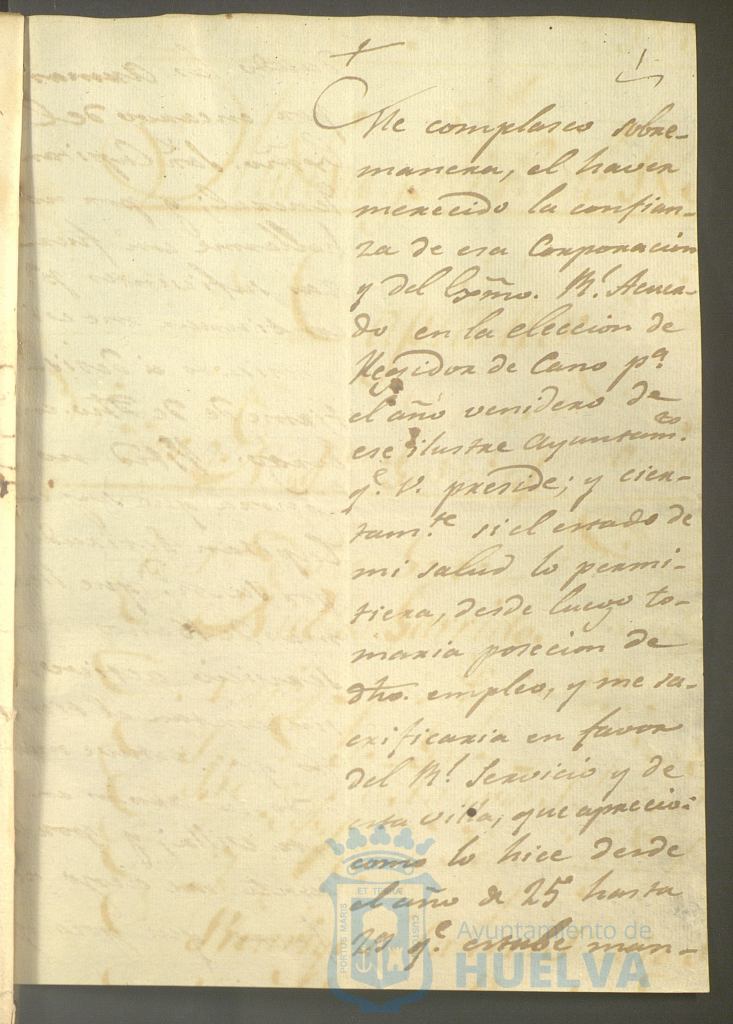 1
Me complasco sobre-
manera, el haver
merecido la confian-
za de esa Corporacion
y del Exmo. Rl. Acuer-
do en la eleccion de
Regidor de Cano pa.
el año venidero de
ese ilustre Ayuntamto.
qe. V. preside; y cier-
tamte. si el estado de
mi salud lo permi-
tiera, desde luego to-
maria posecion de
dho. empleo, y me sa-
crificaria en favor
del Rl. Servicio y de
esta villa, que aprecio:
como lo hice desde
el año de 25 hasta
29 qe. estube man-
PORTUS MARIS ET TERRAE CUSTODIA
Ayuntamiento de
HUELVA